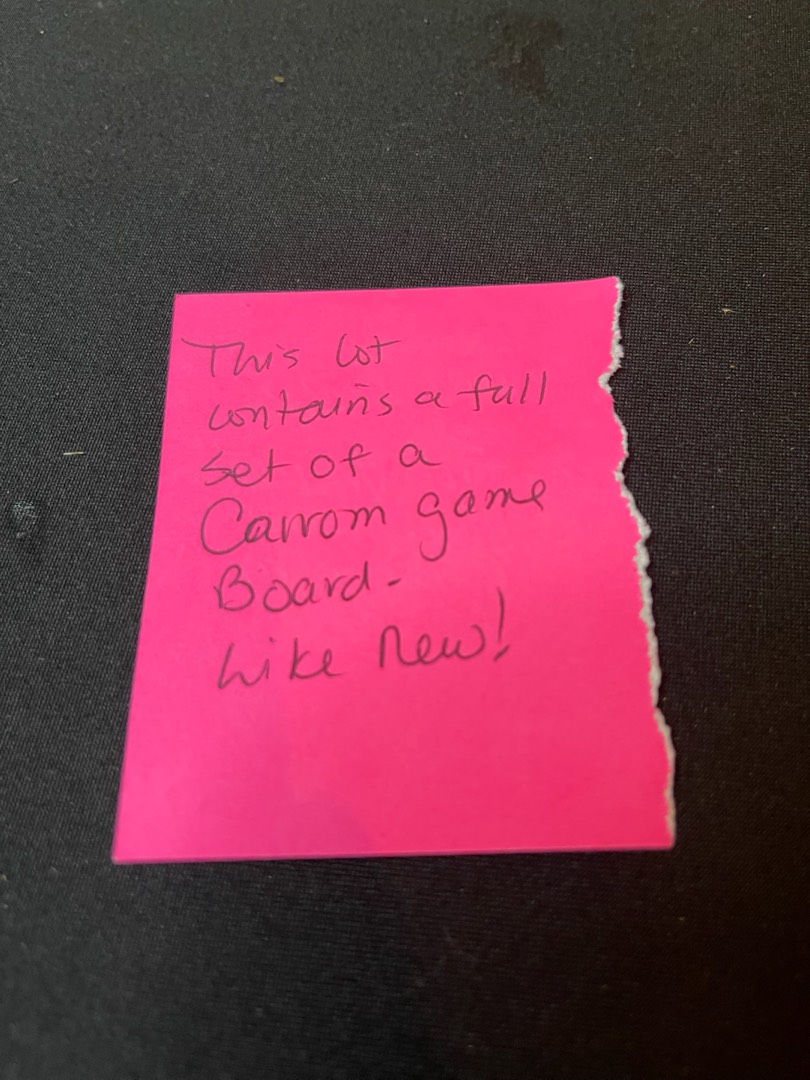 This lot
contains a full
set of a
Carrom game
Board-
Like New!